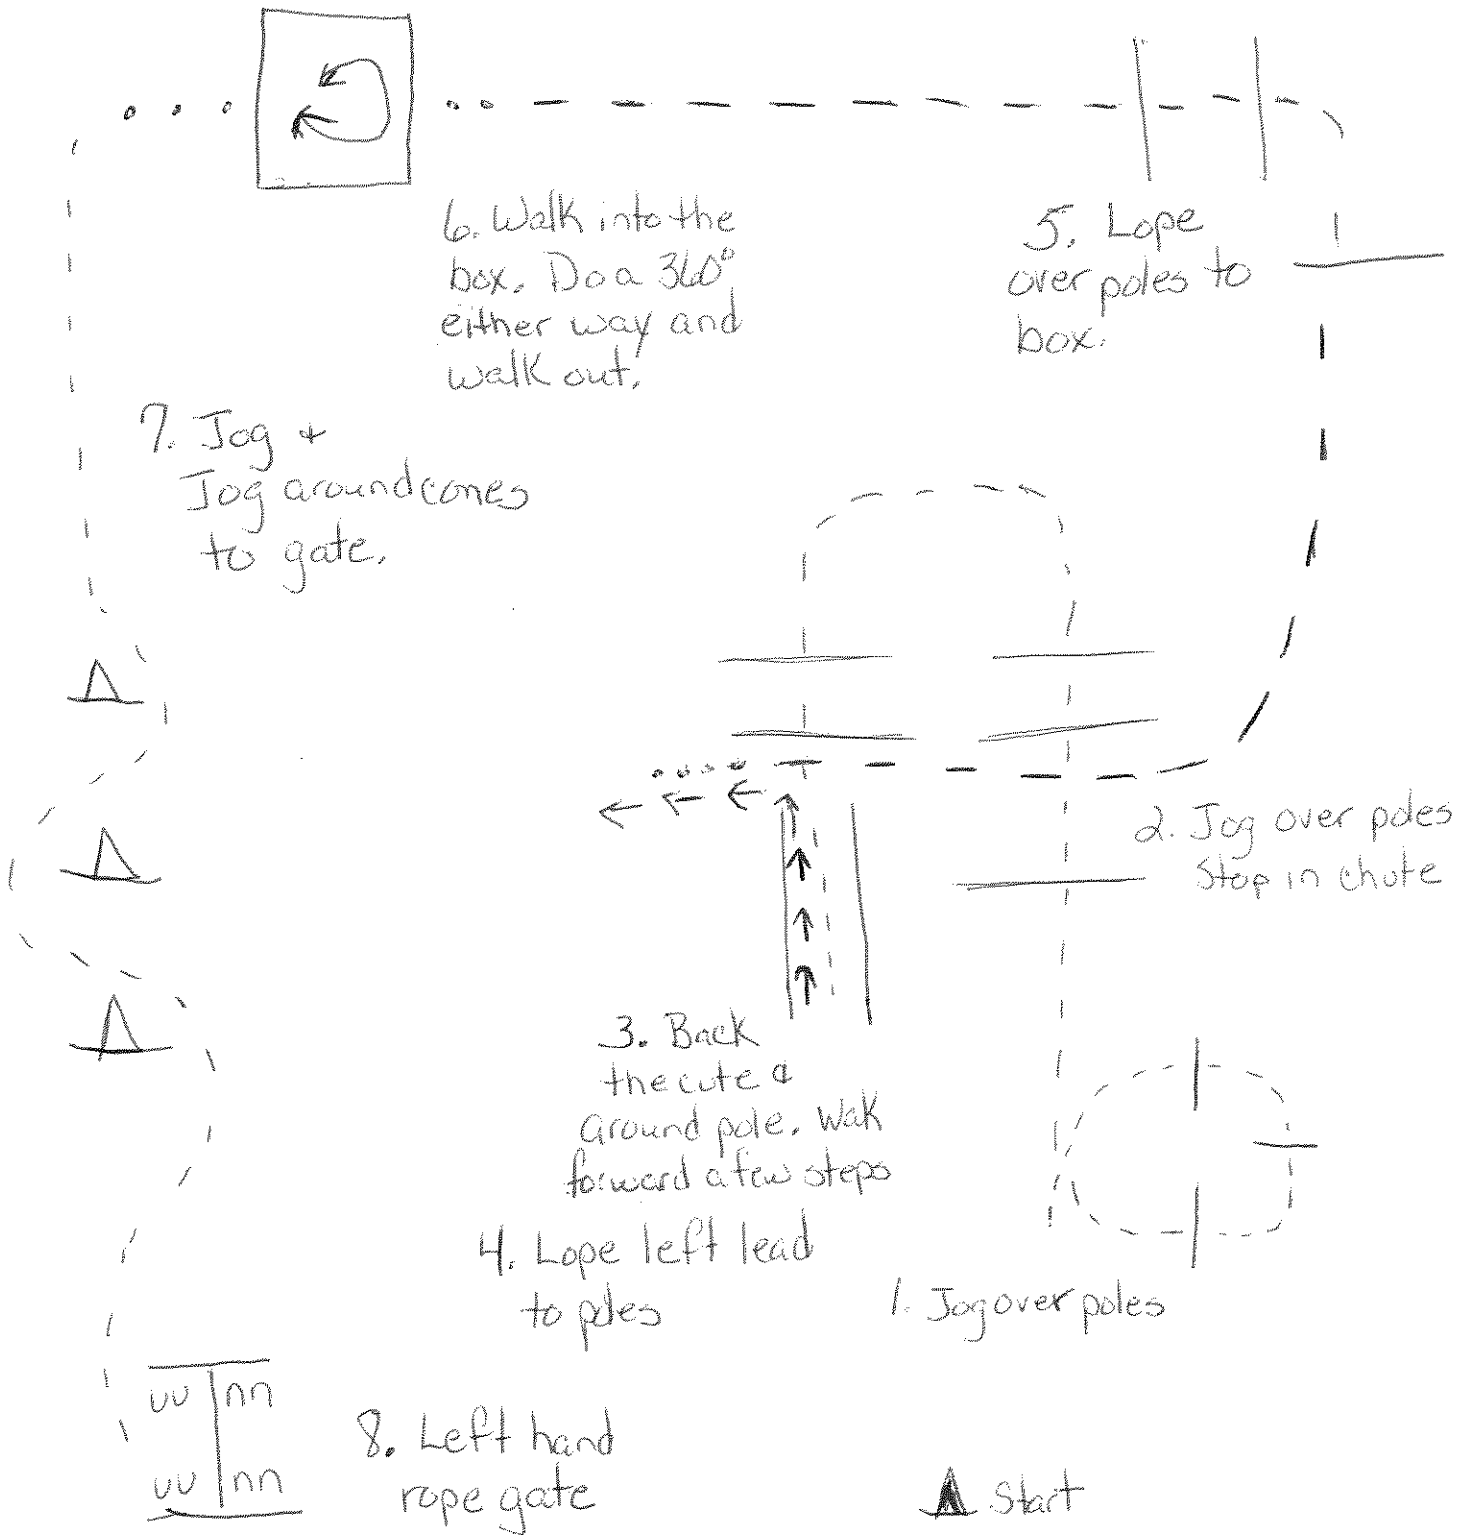 6. Walk into the
box. Do a 360°
either way and
walk out.
5. Lope
over poles to
box.
7. Jog &
Jog around cones
to gate.
2. Jog over poles
Stop in chute
3. Back
the cute &
around pole. Wak
forward a few steps
4. Lope left lead
to poles
1. Jog over poles
8. Left hand
rope gate
Start